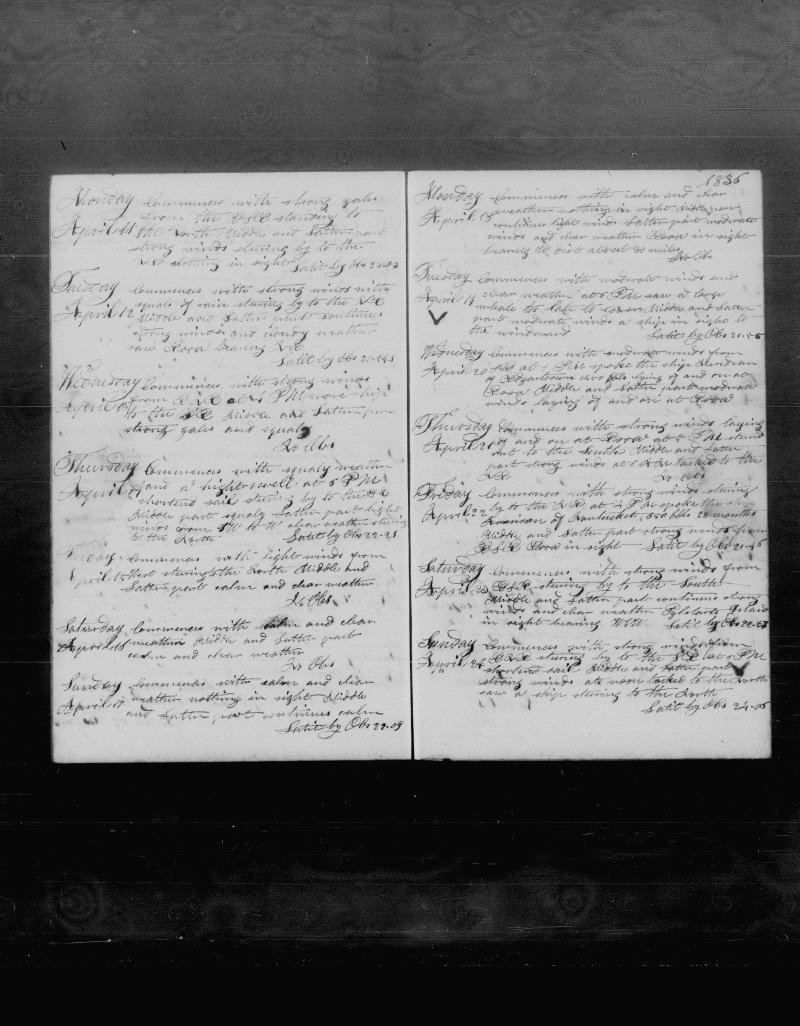 Monday Commences with strong gales
April 11 from the ESE standing to
the North Middle and Latter part
strong winds steering by to the
NE nothing in sight
Latit by Obs 22-43
Tuesday Commences with strong winds with
April 12 squals of rain steering by to the NE
Middle and Latter part continues
strong winds and cloudy weather
saw Rosa bearing NE
Latit by Obs
Wednesday Commences with strong winds
April from at 4 PM wore ship
to the Middle and Latter part
strong gales and squaly
No Obs
Thursday Commences with squaly weather
April and a high swell at 5 PM
shortend sail steering by to the
Middle part squaly Latter part light
winds from SW to W clear weather steering
to the North Latit by Obs 22-21
Commences with light winds from
April 15 West steering to the North Middle and
Latter part calm and clear weather
No Obs
Saturday Commences with calm and clear
April 16 weather Middle and Latter part
calm and clear weather
No Obs
Sunday Commences with calm and clear
April 17 weather nothing in sight Middle
and Latter part continues calm
Latit by Obs 22-09
1836
Monday Commences with calm and clear
April 18 weather nothing in sight Middle part
continues light winds Latter part moderate
winds and clear weather Rosa in sight
bearing W dist about 30 miles
No Obs
Tuesday Commences with moderate winds and
April 19 clear weather at 5 PM saw a large
whale to late to lower Middle and Latter
part moderate winds a ship in sight to
the windward Latit by Obs 21-56
Wednesday Commences with moderate winds from
April 20 at PM spoke the ship
of Edgartown 1200 bbls laying of and on at
Rosa Middle and Latter part moderate
winds laying of and on at Rosa
Thursday Commences with strong winds laying
April 21 of and on at Rosa at 5 PM stand
out to the South Middle and Latter
part strong winds at tacked to the
NE No Obs
Friday Commences with strong winds steering
April 22 by to the NE at 4 PM spoke the ship
American of Nantucket 550 bbls 28 months
Middle and Latter part strong winds from
ESE Rosa in sight Latit by Obs
Saturday Commences with strong winds from
April 23 ESE steering by to the South
Middle and Latter part continues strong
winds and clear weather Island
in sight bearing WSW Latit by Obs
Sunday Commences with strong winds from
April 24 steering by to the at PM
shortend sail Middle and Latter part
strong winds at noon tacked to the north
saw a ship steering to the North
Latit by Obs 24-06